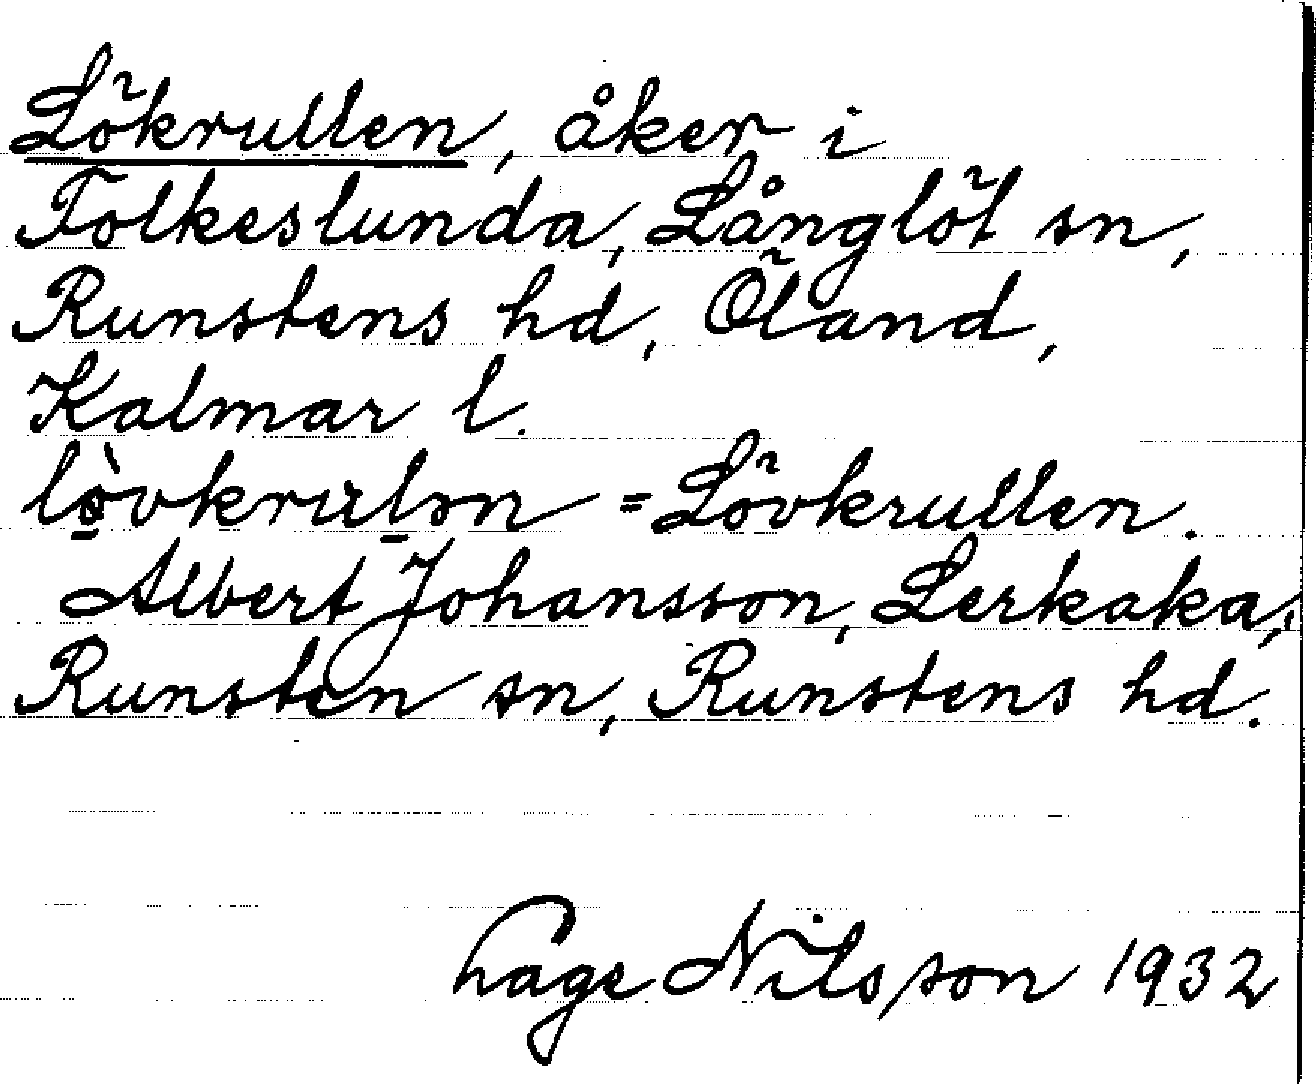 Lökrullen, åker i
Folkeslunda, Långlöt sn,
Runstens hd, Öland,
Kalmar l.
= Lövkrullen.
Albert Johansson, Lerkaka,
Runsten sn, Runstens hd.
Hage Nilsson 1932